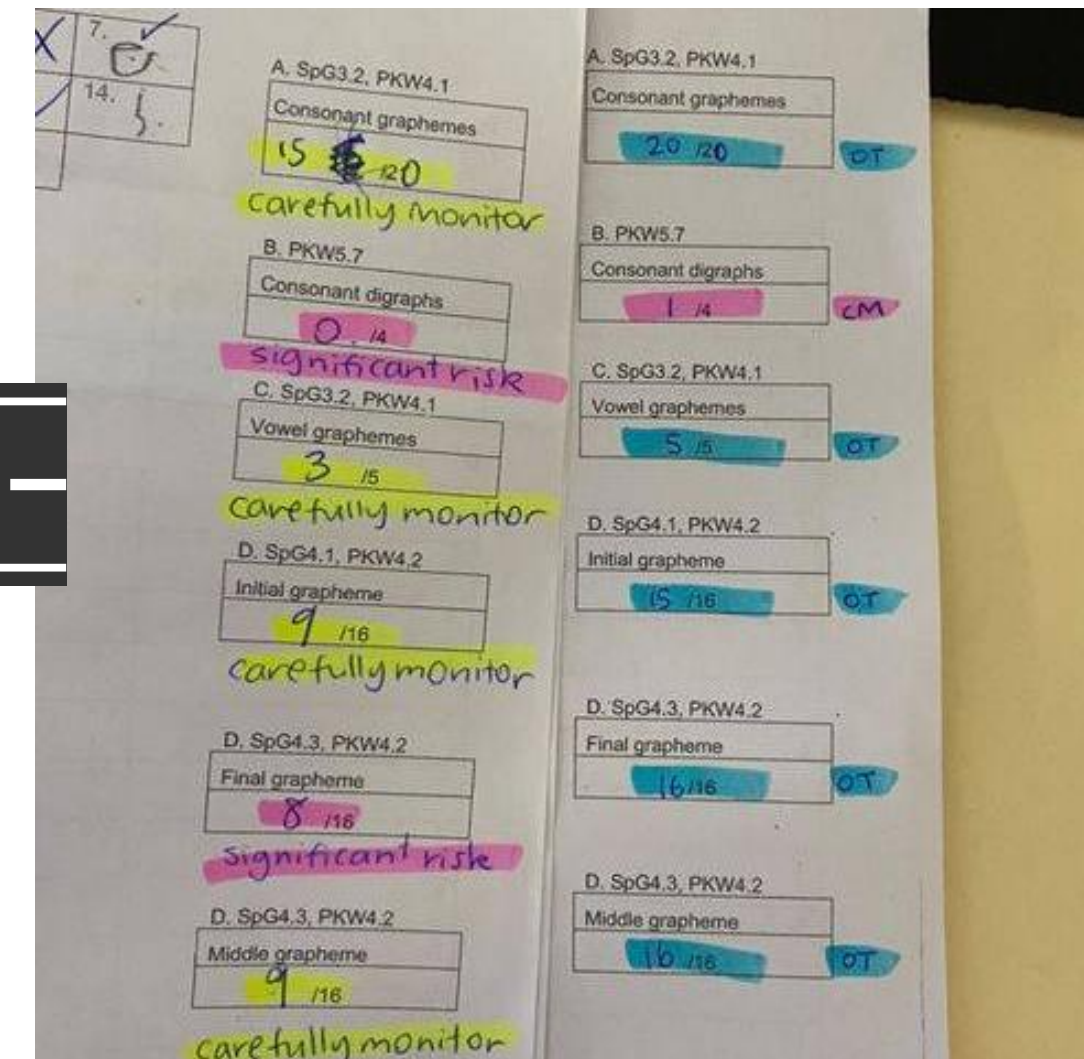 7.
14.
A. SpG3.2, PKW4.1
Consonant graphemes
15 /20
carefully monitor
B. PKW5.7
Consonant digraphs
0 /4
significant risk
C. SpG3.2, PKW4.1
Vowel graphemes
3 /5
carefully monitor
D. SpG4.1, PKW4.2
Initial grapheme
9 /16
carefully monitor
D. SpG4.3, PKW4.2
Final grapheme
8 /16
significant risk
D. SpG4.3, PKW4.2
Middle grapheme
9 /16
carefully monitor
A. SpG3.2, PKW4.1
Consonant graphemes
20 /20 OT
B. PKW5.7
Consonant digraphs
1 /4 CM
C. SpG3.2, PKW4.1
Vowel graphemes
5 /5 OT
D. SpG4.1, PKW4.2
Initial grapheme
15 /16 OT
D. SpG4.3, PKW4.2
Final grapheme
16 /16 OT
D. SpG4.3, PKW4.2
Middle grapheme
16 /16 OT